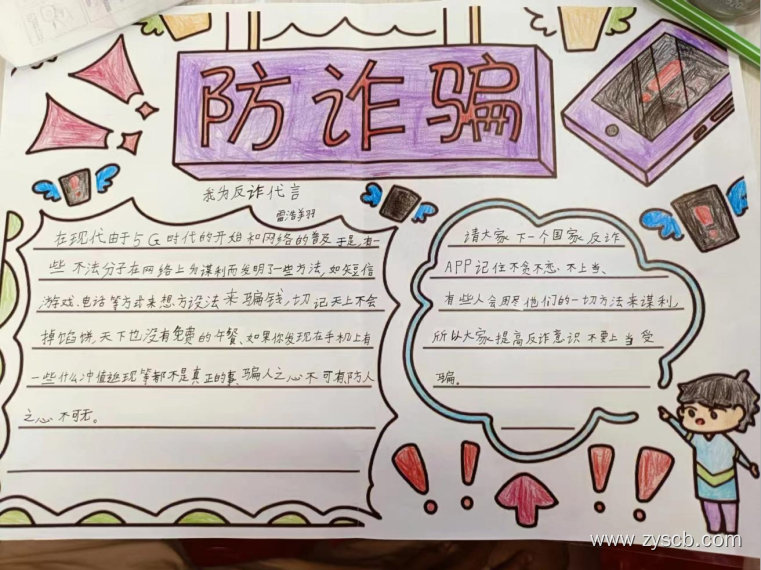 防诈骗
我为反诈代言
雷浩羊羽
在现代由于5G时代的开始和网络的普及于是,有一
些不法分子在网络上为谋利而发明了一些方法,如短信
游戏、电话等方式来想方设法来骗钱,切记天上不会
掉馅饼,天下也没有免费的午餐、如果你发现在手机上有
一些什么冲值返现等都不是真正的事、骗人之心不可有,防人
之心不可无。
请大家下一个国家反诈
APP记住不贪不恋不上当、
有些人会用尽他们的一切方法来谋利,
所以大家提高反诈意识不要上当受
骗。
www.zyscb.com